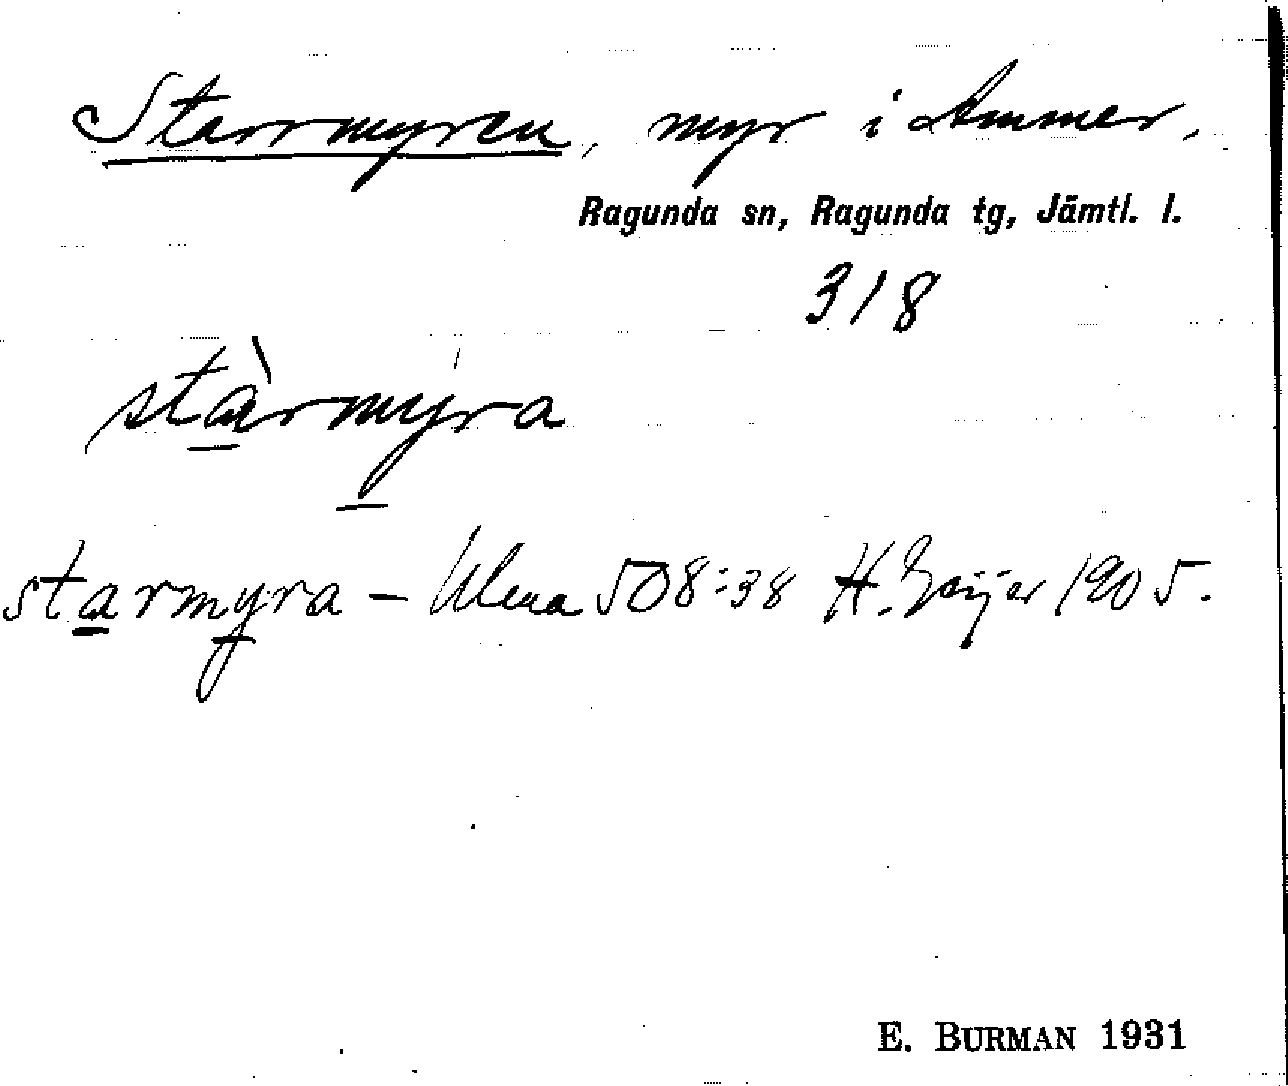 Starrmyren, myr i Ammer.
Ragunda sn, Ragunda tg, Jämtl. l.
318
stàrmýra
starmyra – Ulma 508:38 H. Geijer 1905.
E. BURMAN 1931